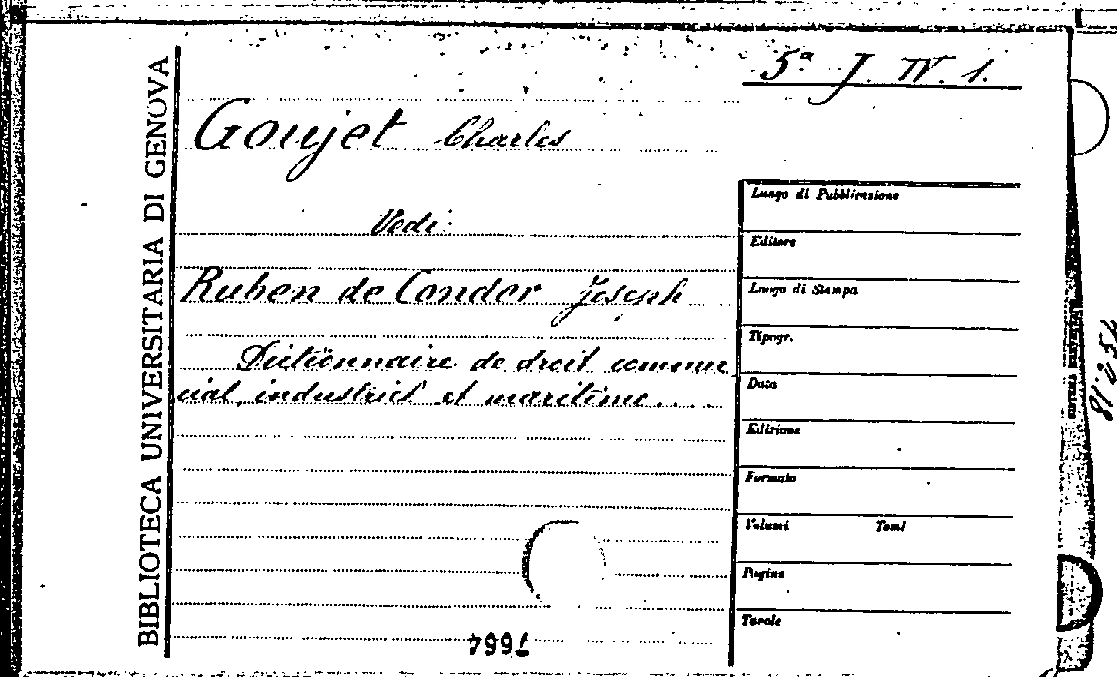 5ª J. IV. 1.
BIBLIOTECA UNIVERSITARIA DI GENOVA
Goujet Charles
Vedi:
Ruben de Couder Joseph
Dictionnaire de droit commer
cial, industriel et maritime....
Luogo di Pubblicazione
Editore
Luogo di Stampa
Tipogr.
Data
Edizione
Formato
Volumi Tomi
Pagine
Tavole
7664